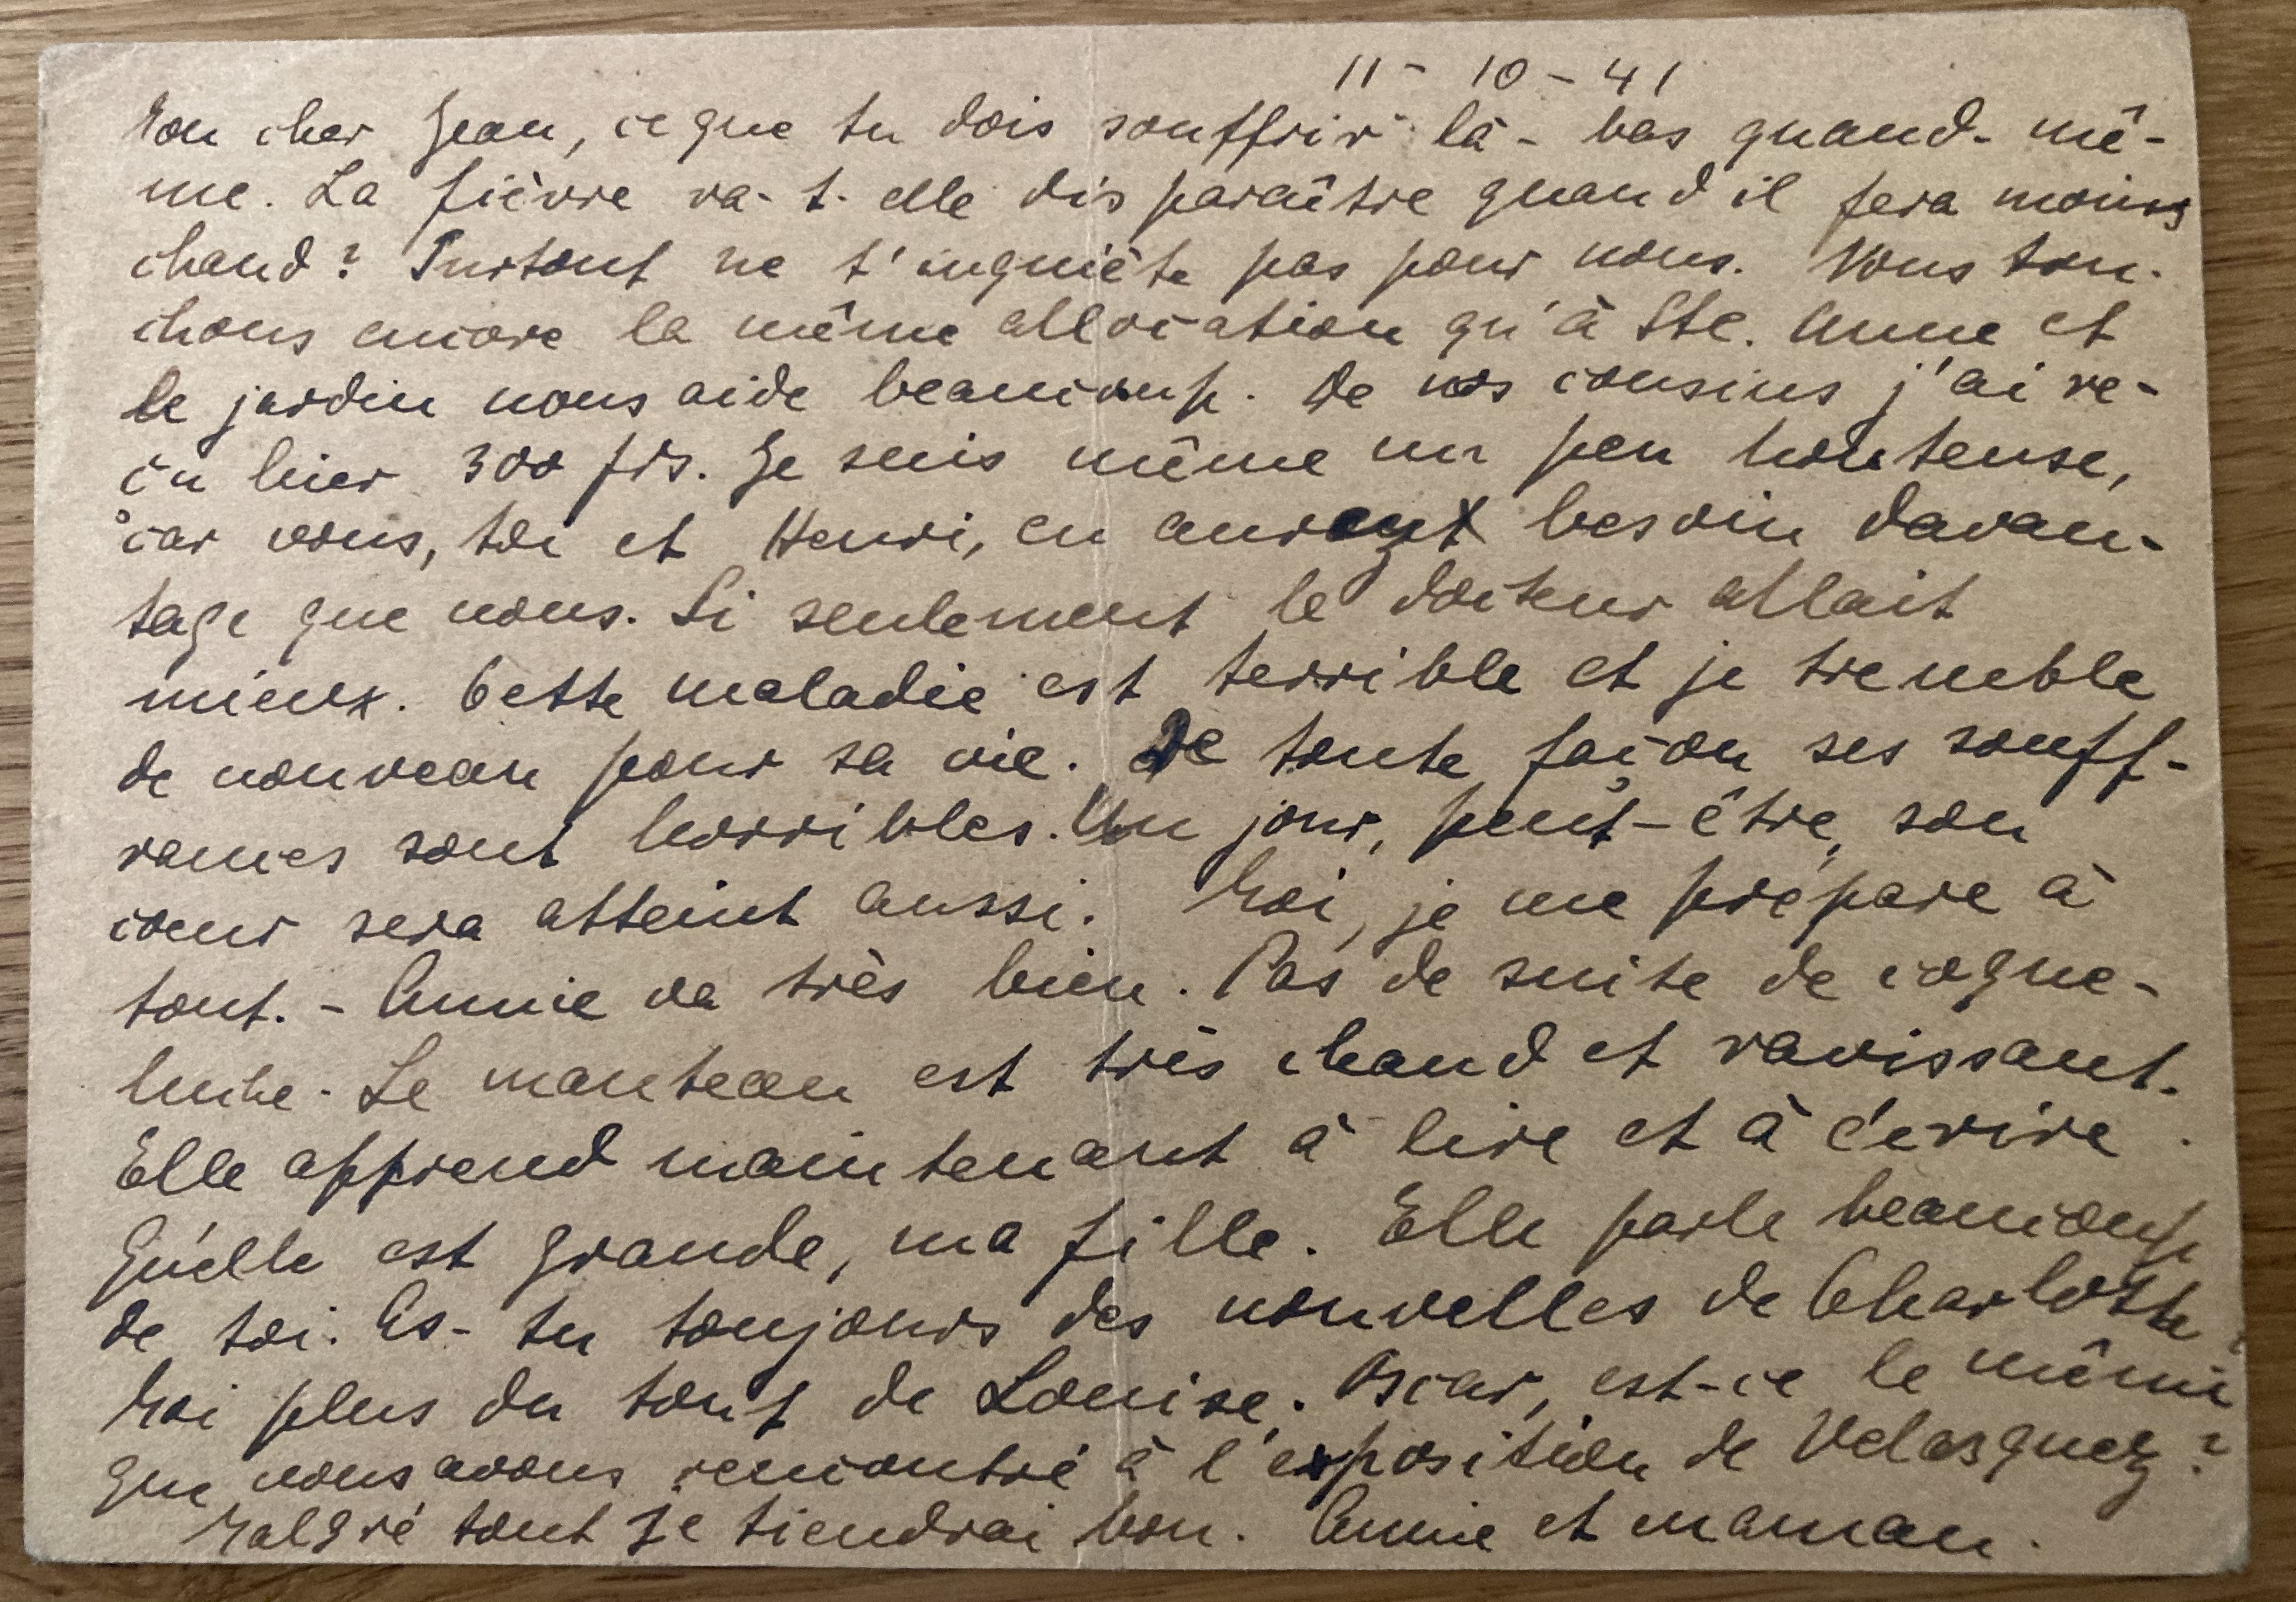 11 - 10 - 41
Mon cher Jean, ce que tu dois souffrir là-bas quand-mê-
me. La fièvre va-t-elle disparaître quand il fera moins
chaud? Surtout ne t'inquiète pas pour nous. Nous tou-
chons encore la même allocation qu'à Ste. Anne et
le jardin nous aide beaucoup. De nos cousins j'ai re-
çu hier 300 frs. Je suis même un peu honteuse,
car vous, toi et Henri, en besoin davan-
tage que nous. Si seulement le docteur allait
mieux. Cette maladie est terrible et je tremble
de nouveau pour sa vie. De toute façon ses souff-
rances sont horribles. Un jour, peut-être, son
coeur sera atteint aussi. Moi, je me prépare à
tout. - Annie va très bien. Pas de suite de coque-
luche. Le manteau est très chaud et ravissant.
Elle apprend maintenant à lire et à écrire.
Qu'elle est grande, ma fille. Elle parle beaucoup
de toi. As-tu toujours des nouvelles de Charlotte?
Moi plus du tout de Louise. Oscar, est-ce le même
que nous avons rencontré à l'exposition de Velasquez?
Malgré tout je tiendrai bon. Annie et maman.